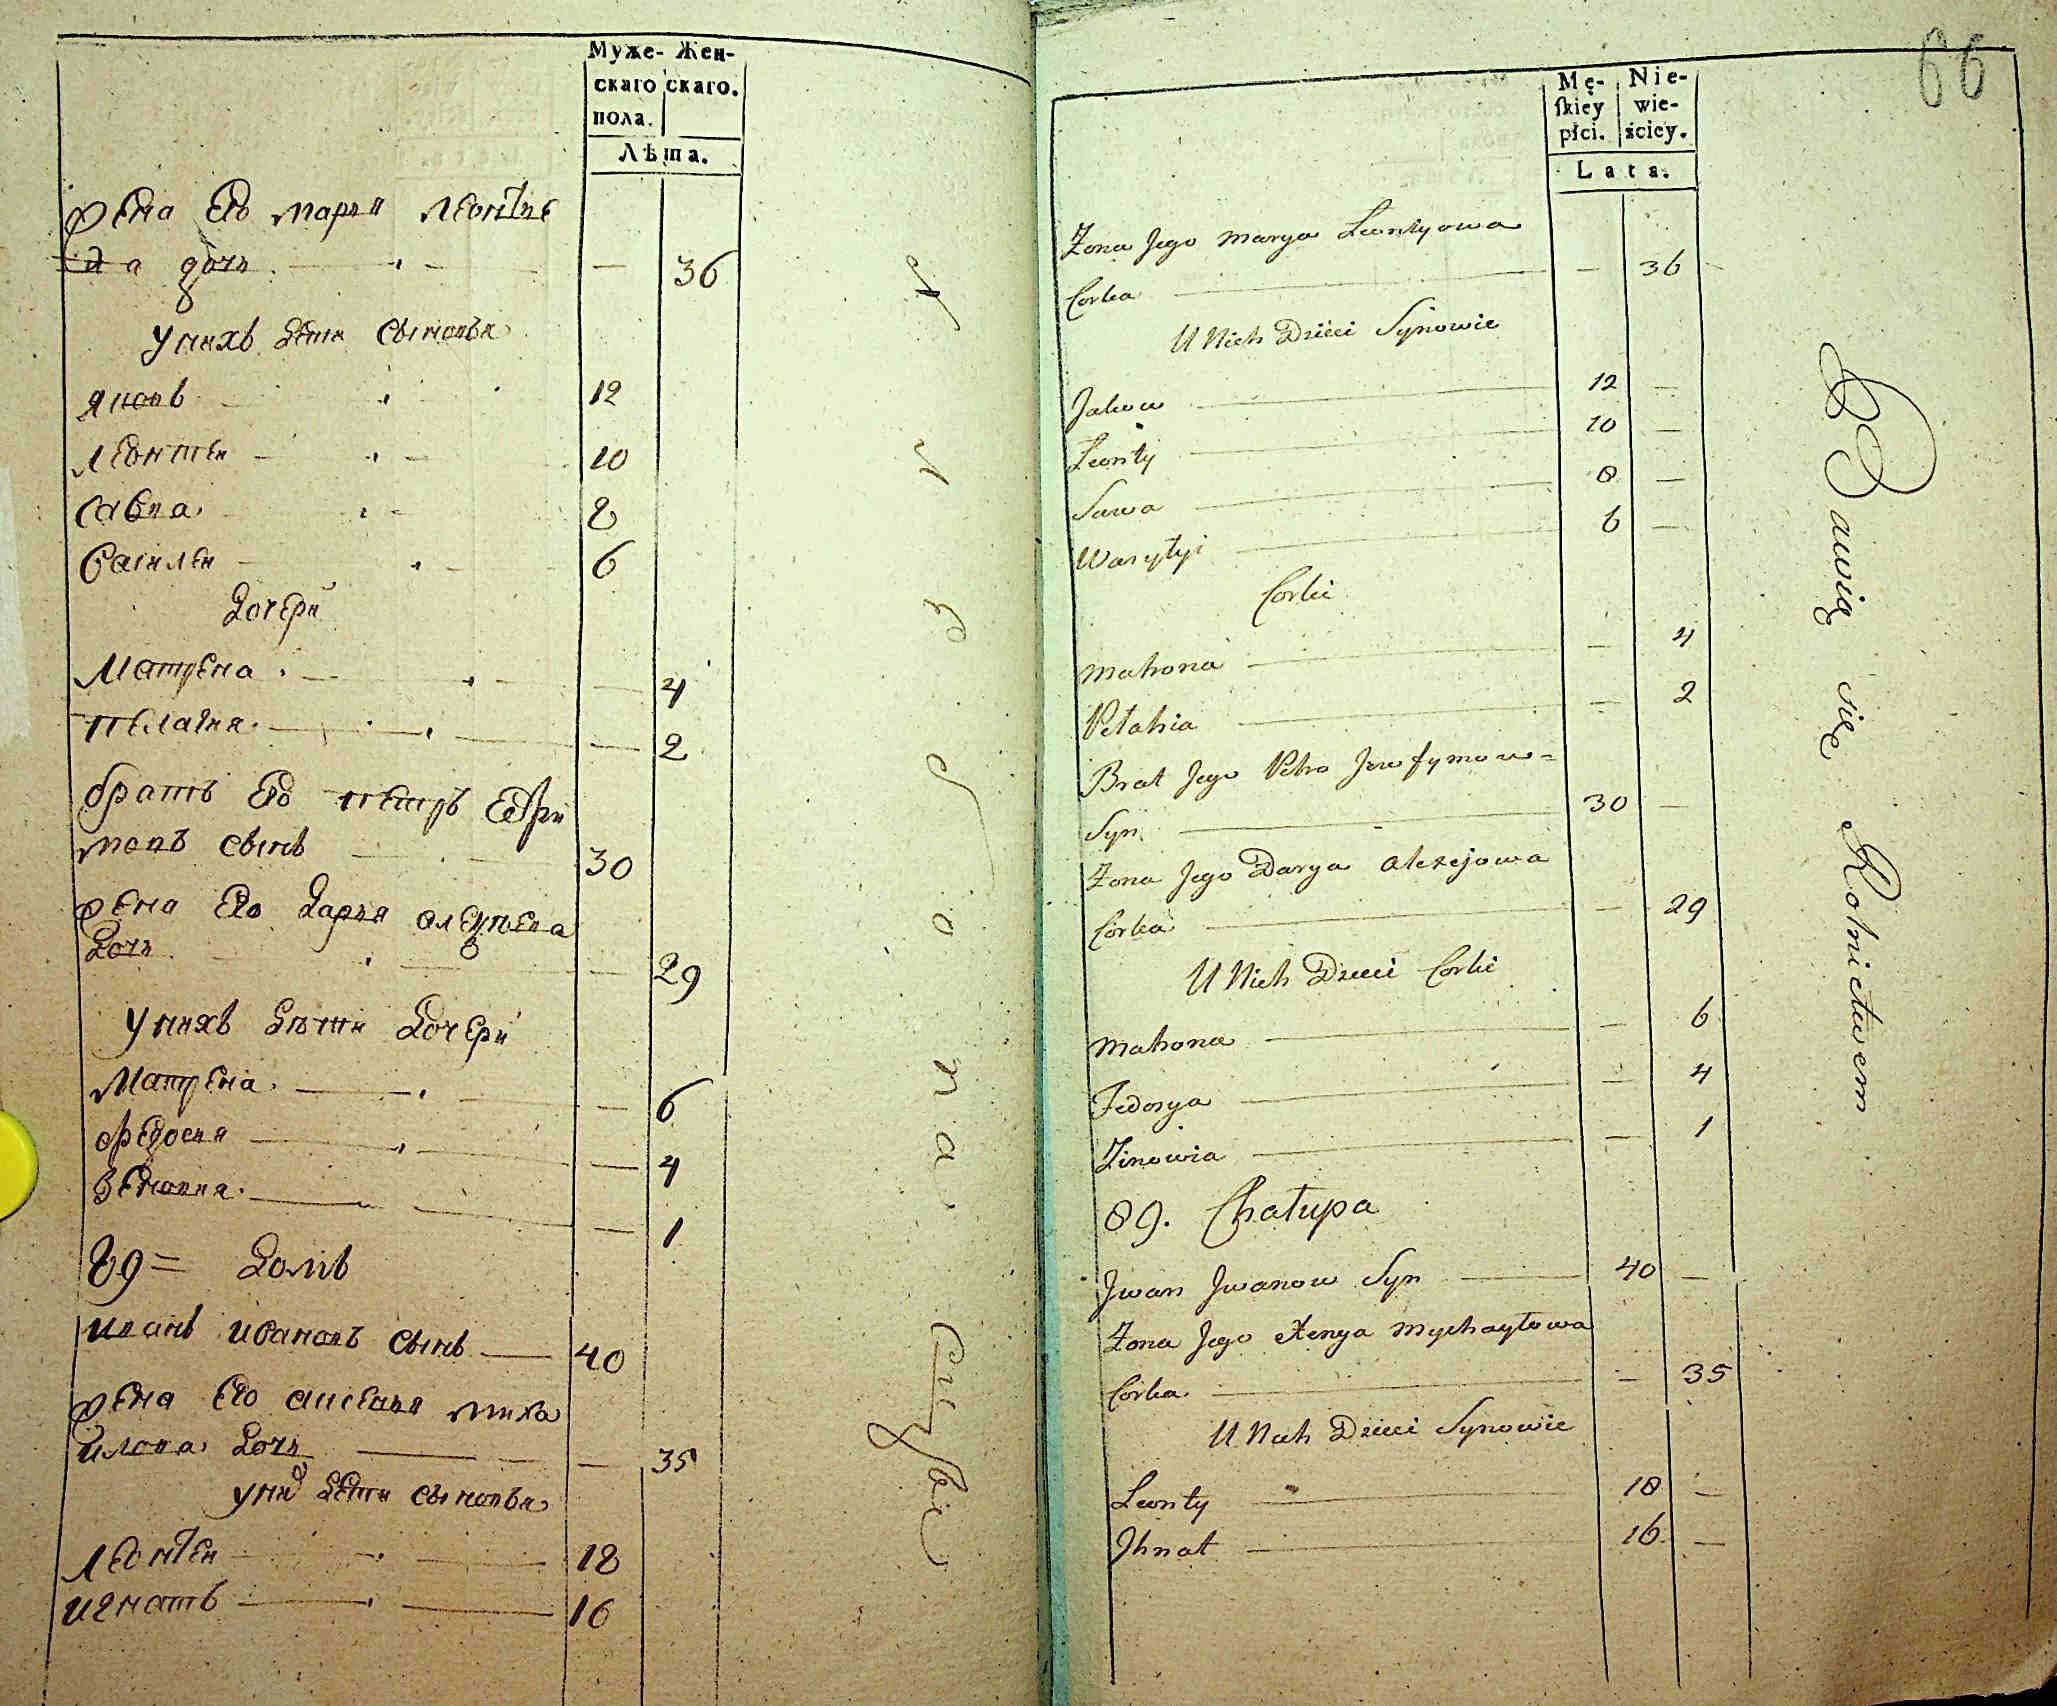 Муже- Жен-
скаго скаго.
пола.
Лѣта.
жена его марья леонтье
ва дочь — 36
у нихъ дети сыновья
яковъ 12
леонтей — 10
савва 8
василей — 6
дочери
матрена — — 4
пелагия — — 2
братъ его петръ ефи
мовъ сынъ — 30
жена его дарья алеѯеева
дочь — — 29
у нихъ дѣти дочери
матрена — — 6
федосия — — 4
зеновия — — 1
89 = домъ
иванъ ивановъ сынъ — 40
жена его аксенья миха
йлова дочь — — 35
у них дети сыновья
леонтей — 18
игнатъ — 16
Mę- Nie-
skiey wie-
płci. ściey.
Lata.
66
Żona Jego Marya Leontyowa
Corka — — 36
U Nich Dzieci Synowie
Jakow — 12 —
Leonty — 10 —
Sawa — 8 —
Wasyłyi — 6 —
Corki
Matrona — — 4
Pełahia — — 2
Brat Jego Petro Jewfymow=
Syn — 30 —
Żona Jego Darya Alexejowa
Corka — — 29
U Nich Dzieci Corki
Matrona — — 6
Fedosya — — 4
Zinowia — — 1
89. Chałupa
Jwan Jwanow Syn — 40 —
Żona Jego Xenya Mychayłowa
Corka — — 35
U Nich Dzieci Synowie
Leonty — 18 —
Jhnat — 16 —
Bawią się Rolnictwem